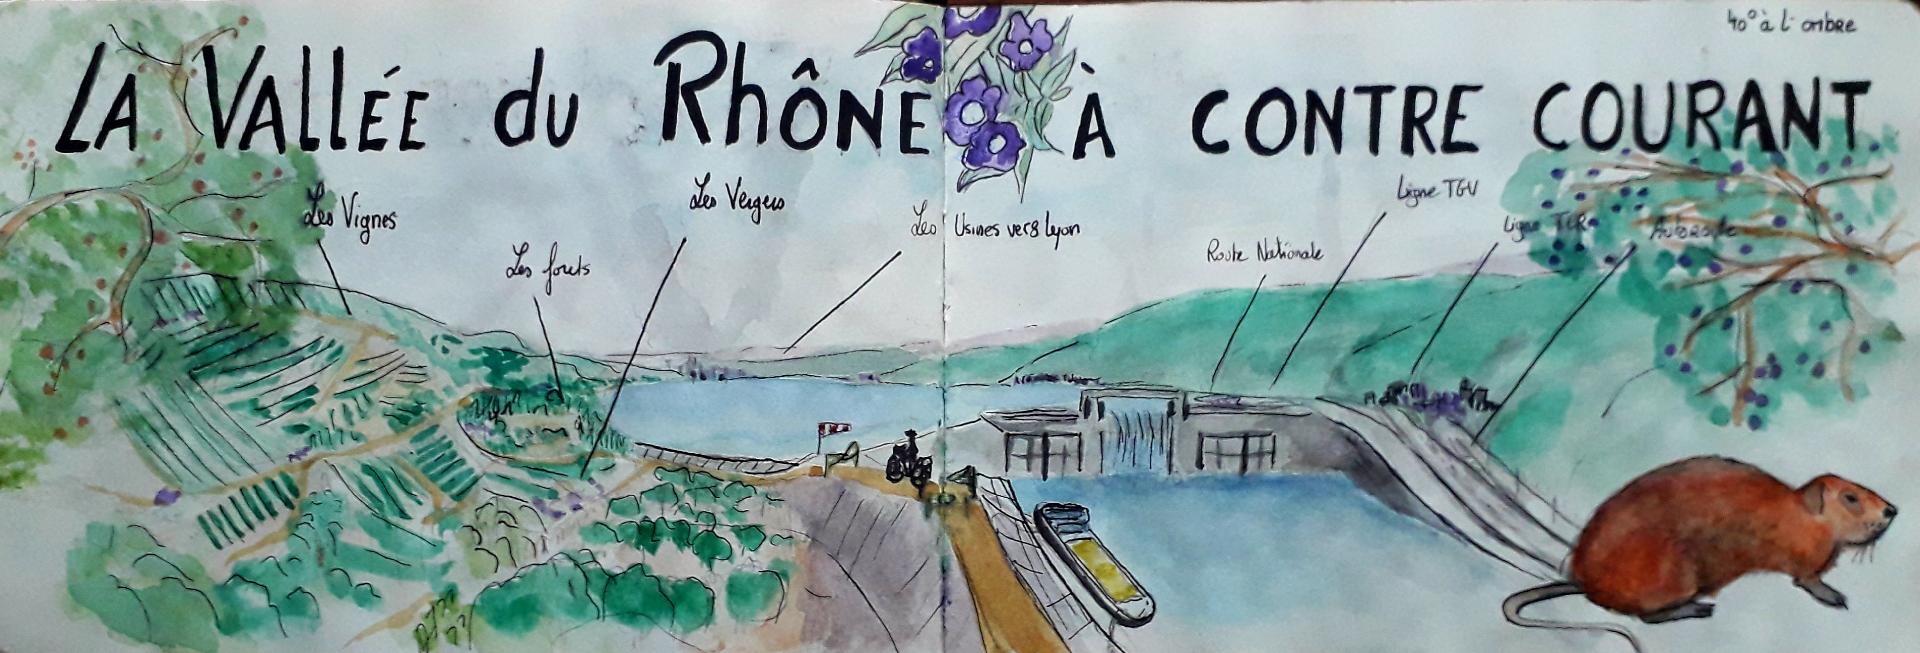 40° à l'ombre
LA VALLÉE du RhÔNE À CONTRE COURANT
Les Vignes
Les forets
Les Vergers
Les Usines vers Lyon
Route Nationale
Ligne TGV
Ligne TER
Autoroute